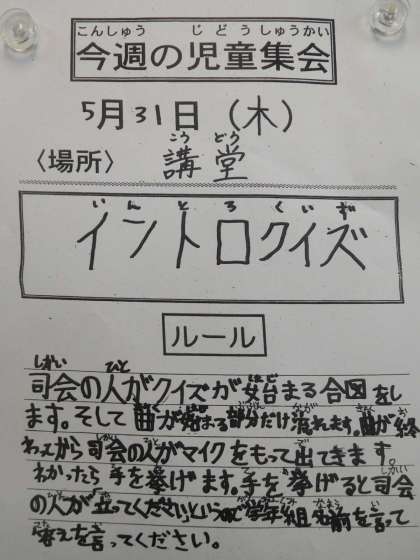 こんしゅう じどうしゅうかい
今週の児童集会
5月31日（木）
こう どう
〈場所〉 講堂
いんとろくいず
イントロクイズ
ルール
しかい ひと はじ
司会の人がクイズが始まる合図をし
ます。そして曲が始まる部分だけ流れます。曲が終
わってから司会の人がマイクをもって出てきます。
わかったら手を挙げます。手を挙げると司会
の人が「立ってください」というので学年組名前を言って
答えを言ってください。